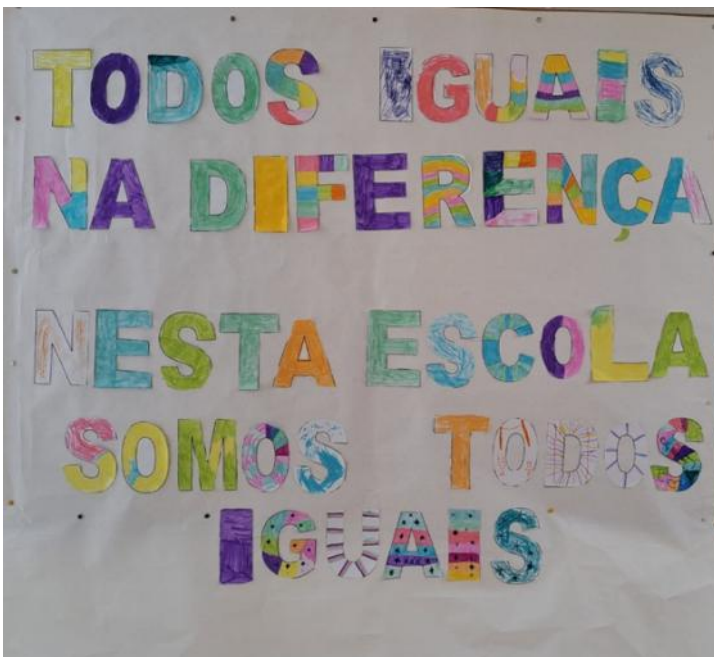 TODOS IGUAIS
NA DIFERENÇA
NESTA ESCOLA
SOMOS TODOS
IGUAIS